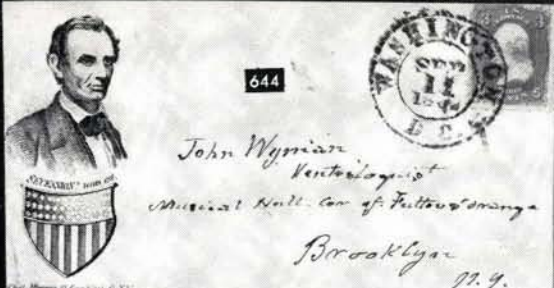 644
WASHINGTON
SEP
11
D.C.
3 3
U S
John Wyman
Ventriloquist
Musical Hall. Cor of. Fulton & Orange
Brooklyn
N.Y.